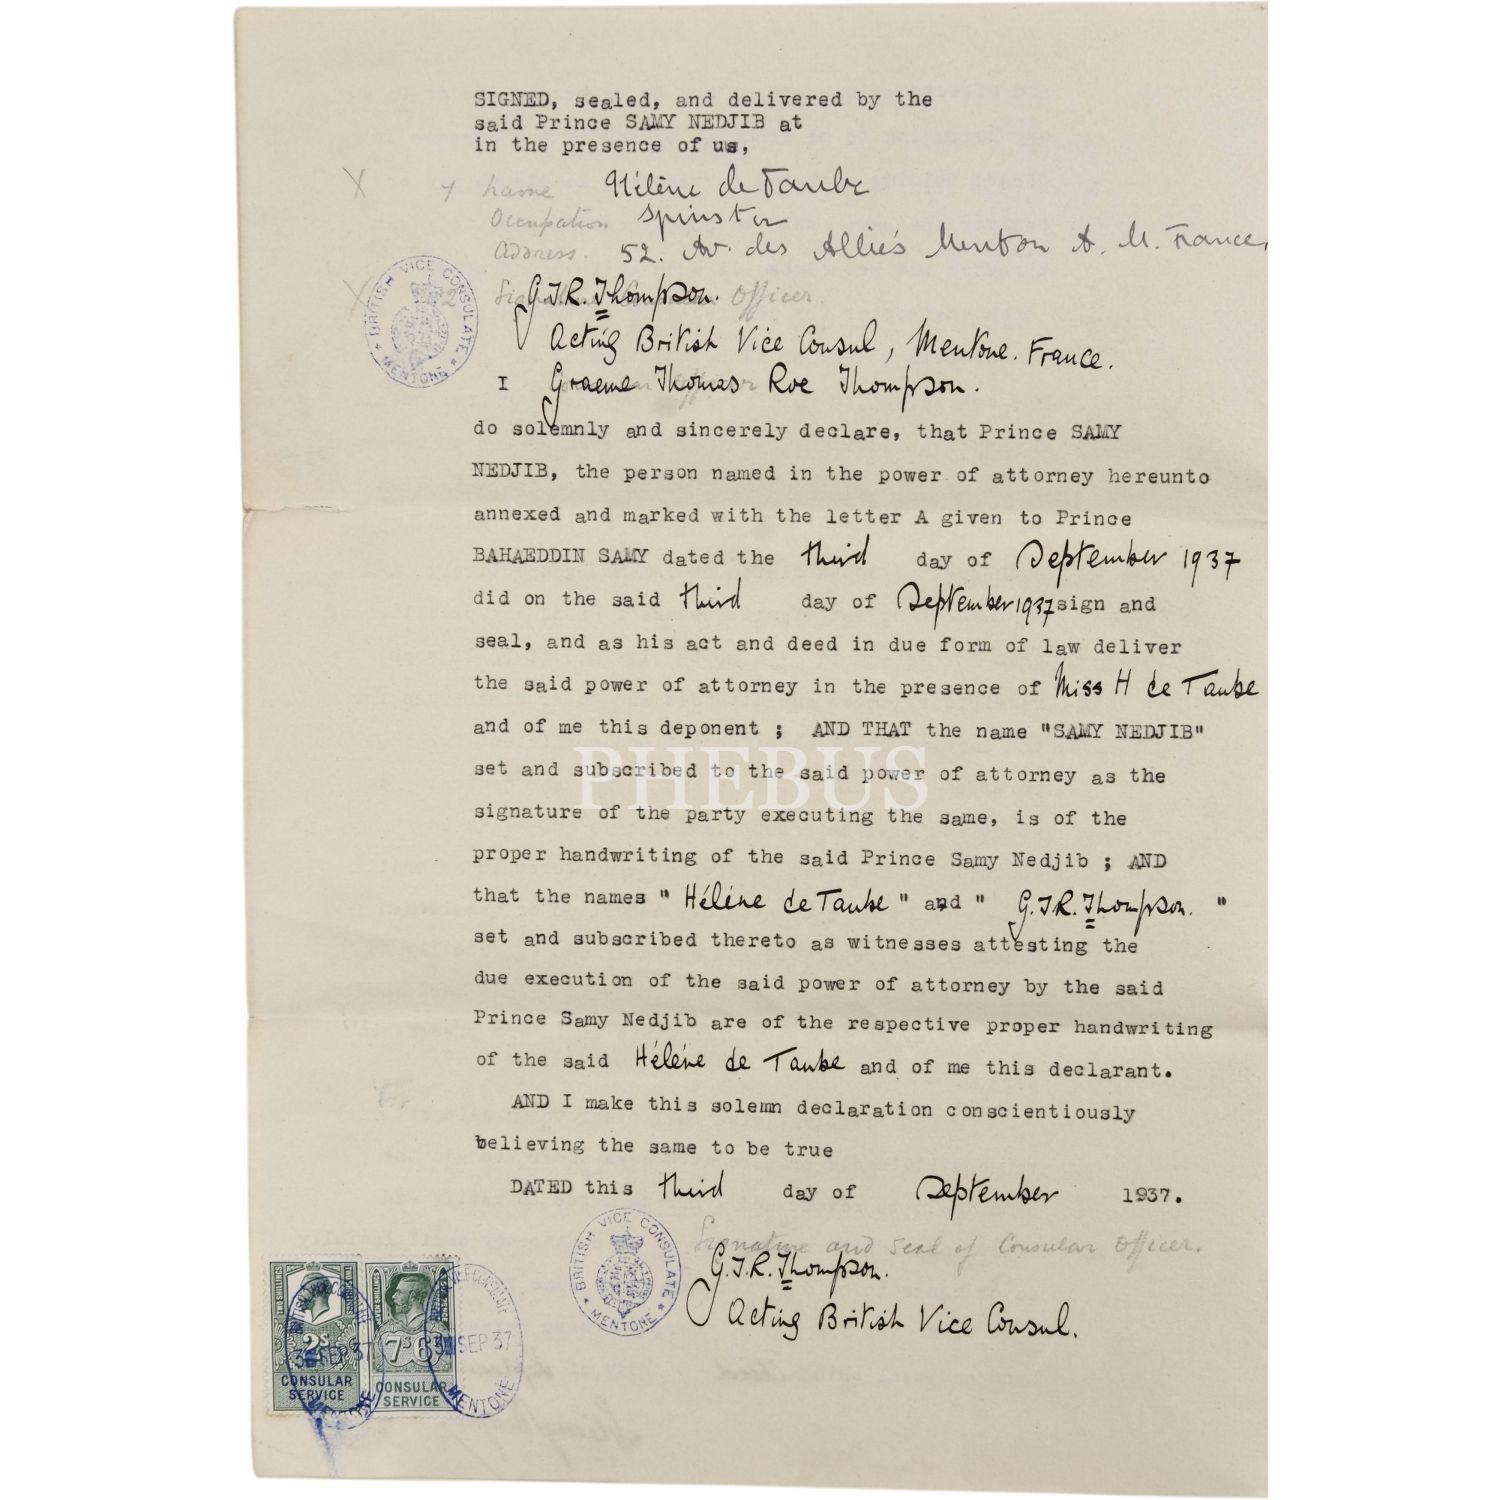 SIGNED, sealed, and delivered by the
said Prince SAMY NEDJIB at
in the presence of us,
X 1 name Hélène de Taube
Occupation Spinster
Address. 52. Av. des Alliés Menton A. M. France.
X 2 Officer.
G.T.R. Thompson.
Acting British Vice Consul, Mentone. France.
I Graeme Thomas Roe Thompson.
do solemnly and sincerely declare, that Prince SAMY
NEDJIB, the person named in the power of attorney hereunto
annexed and marked with the letter A given to Prince
BAHAEDDIN SAMY dated the third day of September 1937
did on the said third day of September 1937 sign and
seal, and as his act and deed in due form of law deliver
the said power of attorney in the presence of Miss H de Taube
and of me this deponent ; AND THAT the name "SAMY NEDJIB"
set and subscribed to the said power of attorney as the
signature of the party executing the same, is of the
proper handwriting of the said Prince Samy Nedjib ; AND
that the names " Hélène de Taube " and " G.T.R. Thompson. "
set and subscribed thereto as witnesses attesting the
due execution of the said power of attorney by the said
Prince Samy Nedjib are of the respective proper handwriting
of the said Hélène de Taube and of me this declarant.
AND I make this solemn declaration conscientiously
believing the same to be true
DATED this third day of September 1937.
Signature and Seal of Consular Officer.
G.T.R. Thompson.
Acting British Vice Consul.
BRITISH VICE CONSULATE
MENTONE
BRITISH VICE CONSULATE
MENTONE
TWO SHILLINGS
2s
CONSULAR
SERVICE
7s6
CONSULAR
SERVICE
3 SEP 37
MENTONE
3 SEP 37
MENTONE
PHEBUS